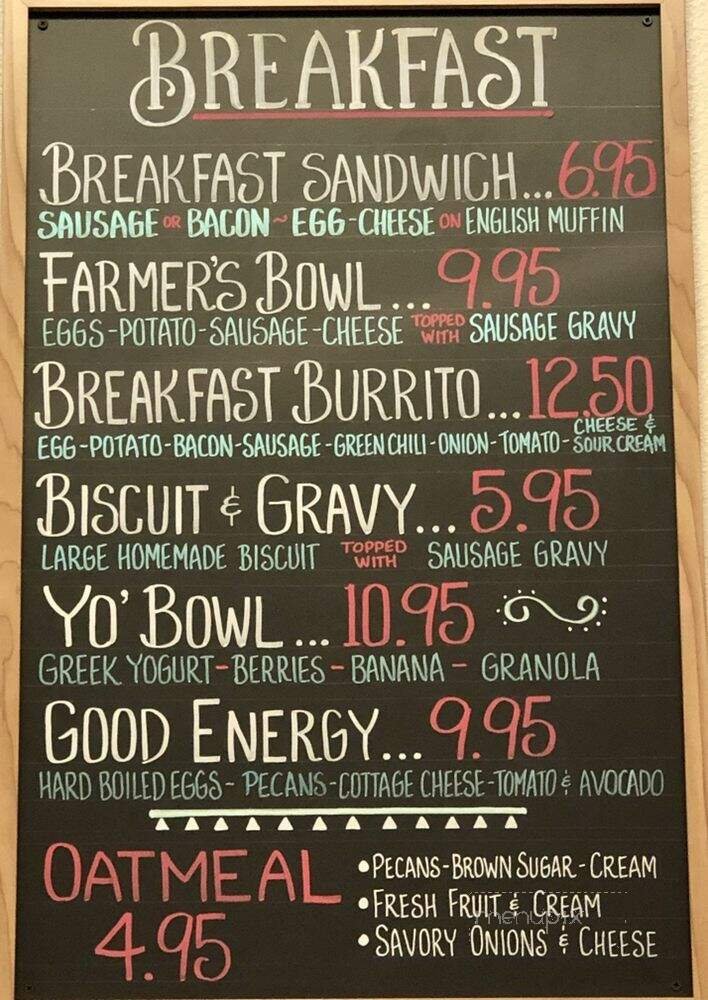 BREAKFAST
BREAKFAST SANDWICH...6.95
SAUSAGE OR BACON ~ EGG-CHEESE ON ENGLISH MUFFIN
FARMER'S BOWL...9.95
EGGS-POTATO-SAUSAGE-CHEESE TOPPED WITH SAUSAGE GRAVY
BREAKFAST BURRITO...12.50
EGG-POTATO-BACON-SAUSAGE-GREEN CHILI-ONION-TOMATO-CHEESE & SOUR CREAM
BISCUIT & GRAVY...5.95
LARGE HOMEMADE BISCUIT TOPPED WITH SAUSAGE GRAVY
YO' BOWL...10.95
GREEK YOGURT-BERRIES-BANANA-GRANOLA
GOOD ENERGY...9.95
HARD BOILED EGGS-PECANS-COTTAGE CHEESE-TOMATO & AVOCADO
OATMEAL
4.95
•PECANS-BROWN SUGAR-CREAM
•FRESH FRUIT & CREAM
•SAVORY ONIONS & CHEESE
menupix